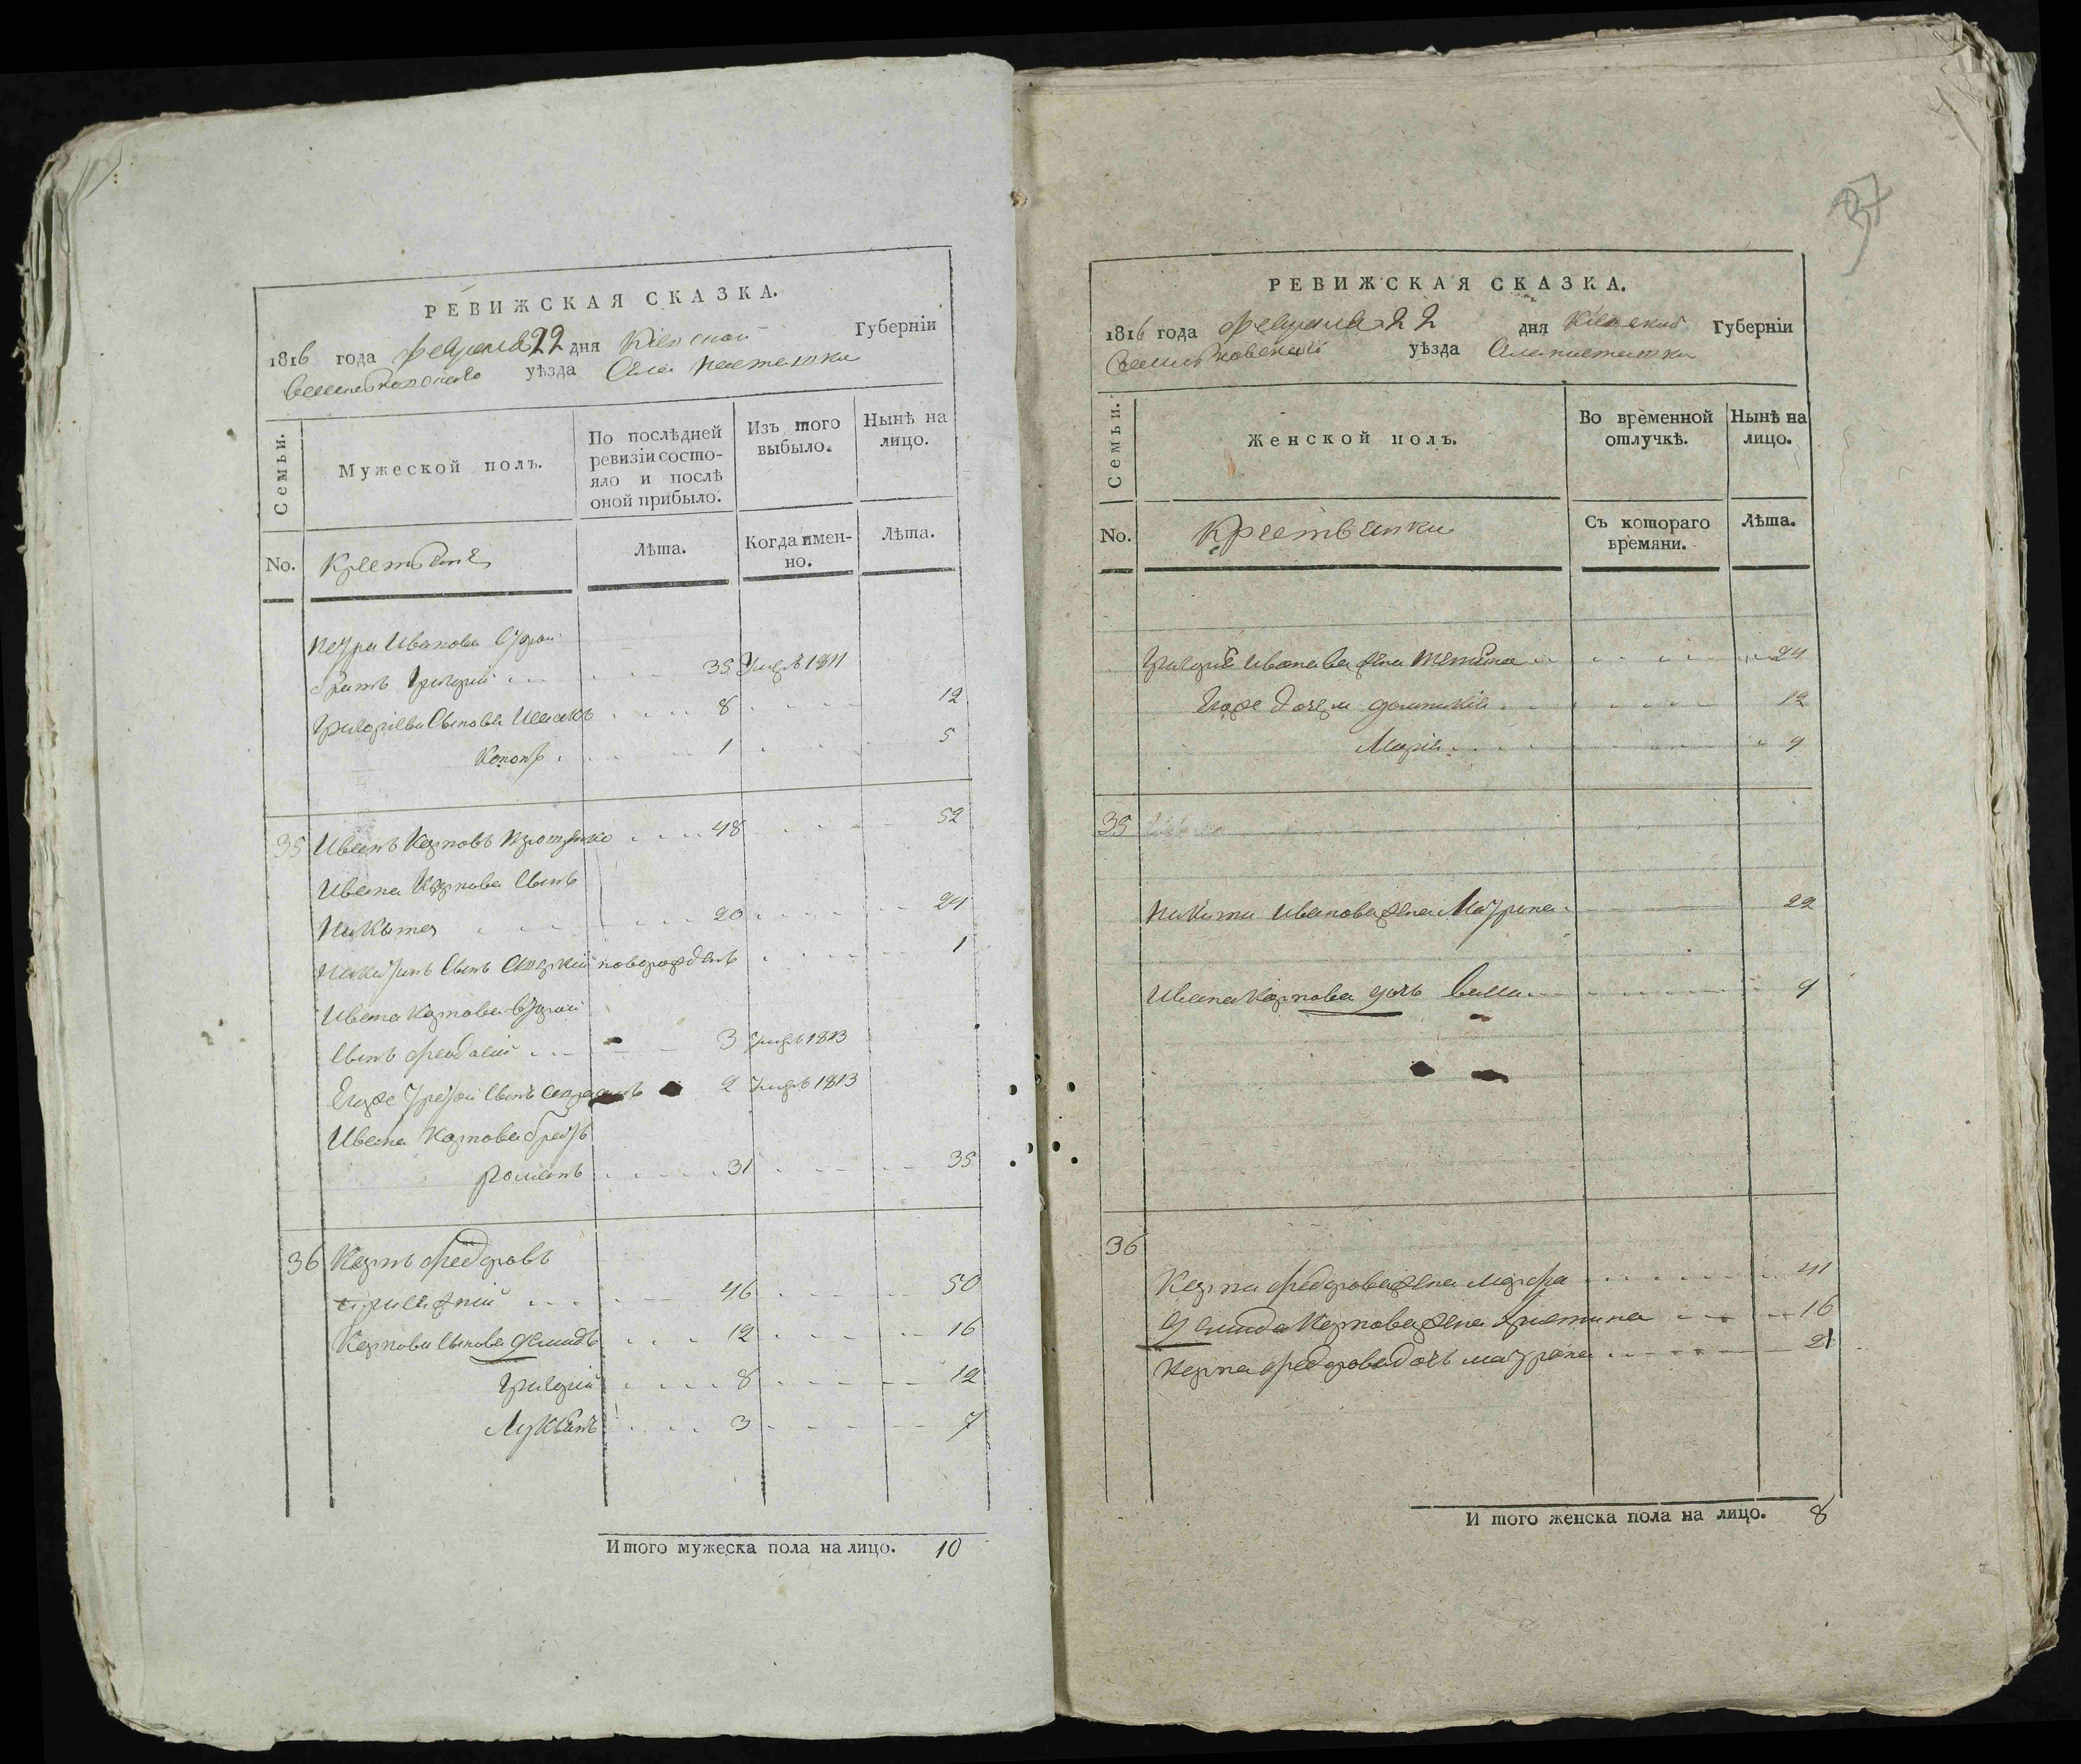 РЕВИЖСКАЯ СКАЗКА.
1816 года февраля 22 дня Кіевской Губерніи
Васильковского уѣзда Села
Семьи.
Мужеской полъ.
По послѣдней ревизіи состояло и послѣ оной прибыло.
Изъ того выбыло.
Нынѣ на лицо.
No.
Крестьяне
Лѣта.
Когда имен-но.
Лѣта.
Петра Иванова второй
братъ Григорій 35 умеръ 1811
Григорія сыновья Исаакъ 8 12
Кононъ 1 5
35 Иванъ Карповъ 48 52
Ивана Карпова сынъ
Никита 20 24
сынъ новорожденъ 1
Ивана Карпова второй
сынъ Феодосій 3 умеръ 1813
Егоже третій сынъ 2 умеръ 1813
Ивана Карпова братъ
Романъ 31 35
36 Карпъ Федоровъ
46 50
Карпова сыновья Демидъ 12 16
Григорій 8 12
Лукьянъ 3 7
Итого мужеска пола на лицо. 10
37
РЕВИЖСКАЯ СКАЗКА.
1816 года февраля 22 дня Кіевской Губерніи
Васильковского уѣзда Села
Семьи.
Женской полъ.
Во временной отлучкѣ.
Нынѣ на лицо.
No.
Крестьянки
Съ котораго времяни.
Лѣта.
Григорія Иванова жена Татіана 24
Егоже дочери 12
Марія 9
35
Никиты Иванова жена Матрона 22
Ивана Карпова дочь 9
36
Карпа Федорова жена Марфа 41
Демида Карпова жена Христина 16
Карпа Федорова дочь Матрона 21
Итого женска пола на лицо. 8